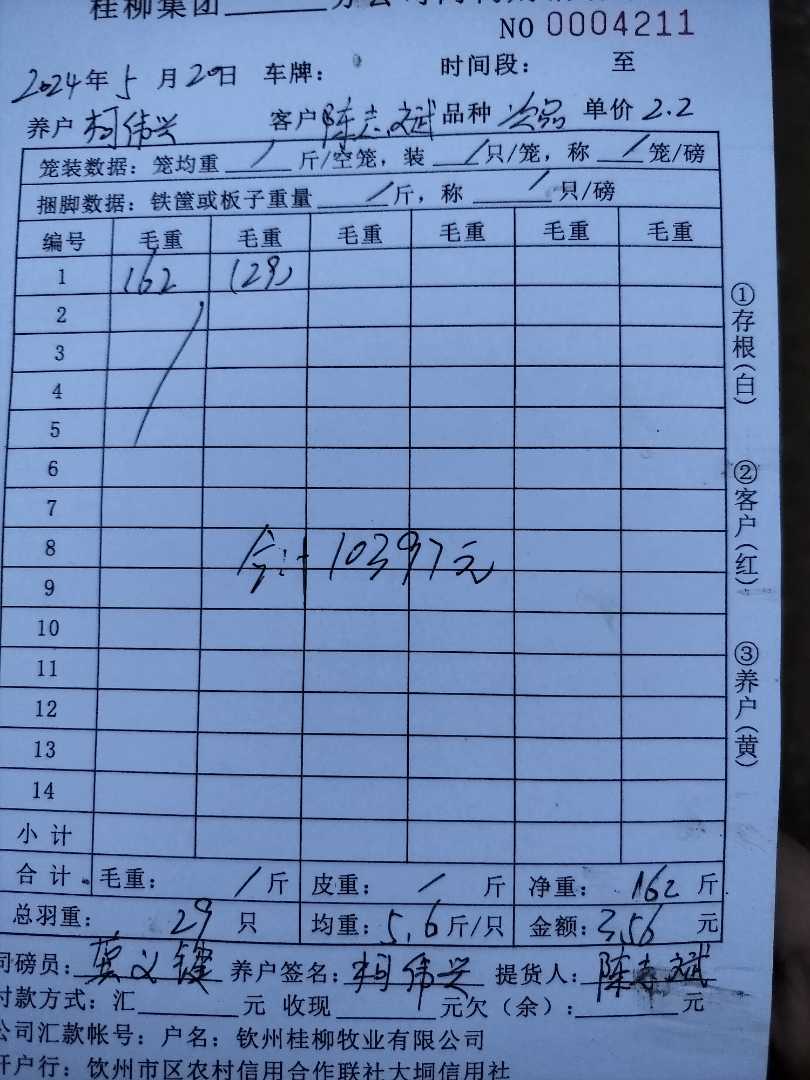 桂柳集团
NO 0004211
2024年5月20日 车牌： 时间段： 至
养户 柯伟兴 客户 陈志斌 品种 次品 单价 2.2
笼装数据：笼均重 / 斤/空笼，装 / 只/笼，称 / 笼/磅
捆脚数据：铁筐或板子重量 / 斤，称 / 只/磅
编号 毛重 毛重 毛重 毛重 毛重 毛重
1 162 (29)
2
3
4
5
6
7
8
合计 10397元
9
10
11
12
13
14
小计
合计 毛重： / 斤 皮重： / 斤 净重： 162 斤
总羽重： 29 只 均重： 5.6 斤/只 金额： 356 元
司磅员： 义锋 养户签名： 柯伟兴 提货人： 陈志斌
付款方式：汇 元 收现 元欠（余）： 元
公司汇款帐号：户名：钦州桂柳牧业有限公司
开户行：钦州市区农村信用合作联社大垌信用社
①存根（白）
②客户（红）
③养户（黄）